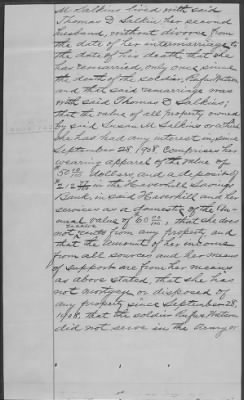 M Salkins lived with said
Thomas D Salkins her second
husband, without divorce from
the date of her intermarriage to
the date of his death, that she
has remarried, only one since
the death of the soldier, Rufus Watson
and that said remarriage was
with said Thomas D Salkins;
that the value of all property owned
by said Susan M Salkins or that
she has had any interest in since
September 28 1908 comprises her
wearing apparel of the value of
50 00/100 dollars, and a deposit of
in the Haverhill Savings
Bank, in said Haverhill and her
services as a domestic of the an-
nual value of 60 00/100; that she does
not receive rents from any property and
that the amount of her income
from all sources and her means
of support are from her means
as above stated, that she has
not mortgage or disposed of
any property since September 28,
1908, that the soldier Rufus Watson
did not serve in the Army or